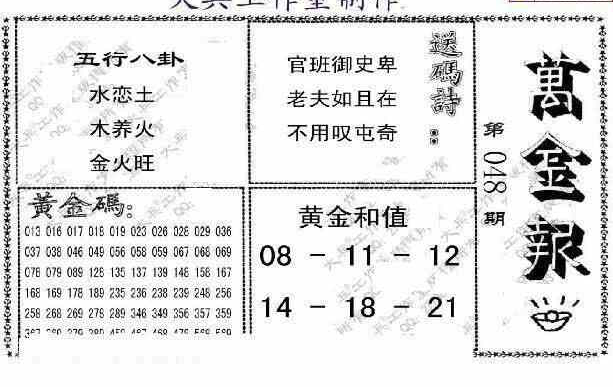 五行八卦
水恋土
木养火
金火旺
送碼詩：
官班御史卑
老夫如且在
不用叹屯奇
萬金報
第048期
黃金碼：
013 016 017 018 019 023 026 028 029 036
037 038 046 049 056 058 059 067 068 069
078 079 089 128 135 137 139 148 158 167
168 169 178 189 235 236 238 239 248 256
258 268 269 278 289 346 349 356 357 359
黄金和值
08 - 11 - 12
14 - 18 - 21